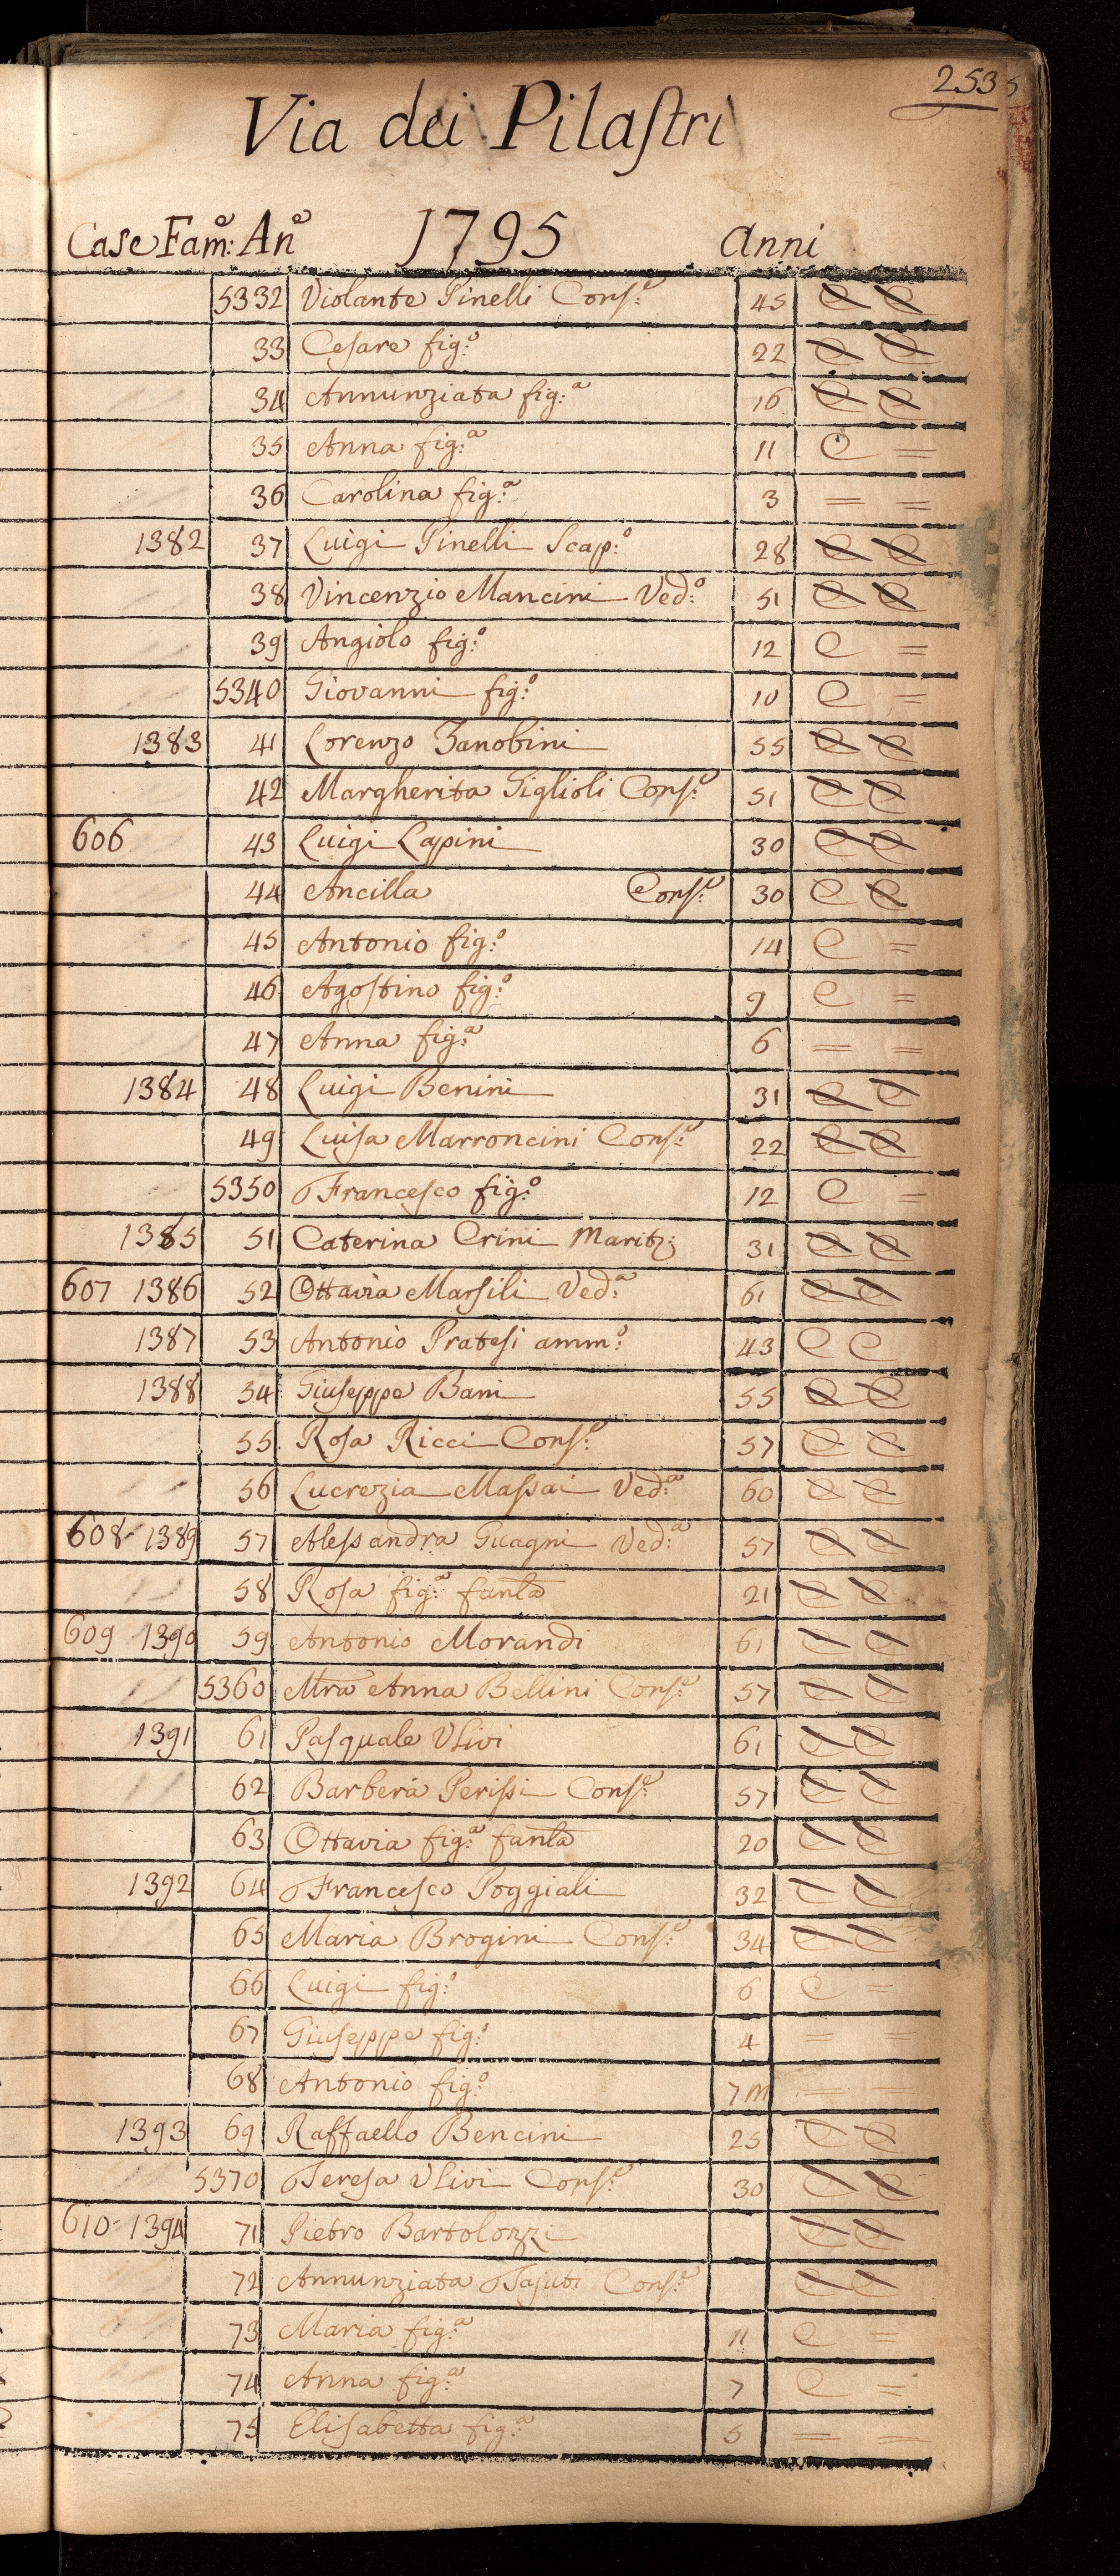 253
Via dei Pilastri
Case Fam:e An:e 1795 Anni
5332 Violante Pinelli Cons:e 45 C C
33 Cesare fig:o 22 C C
34 Annunziata fig:a 16 C C
35 Anna fig:a 11 C =
36 Carolina fig:a 3 = =
1382 37 Luigi Pinelli Scap:o 28 C C
38 Vincenzio Mancini Ved:o 51 C C
39 Angiolo fig:o 12 C =
5340 Giovanni fig:o 10 C =
1383 41 Lorenzo Zanobini 55 C C
42 Margherita Giglioli Cons:e 51 C C
606 43 Luigi Lapini 30 C C
44 Ancilla Cons:e 30 C C
45 Antonio fig:o 14 C =
46 Agostino fig:o 9 C =
47 Anna fig:a 6 = =
1384 48 Luigi Benini 31 C C
49 Luisa Marroncini Cons:e 22 C C
5350 Francesco fig:o 12 C =
1385 51 Caterina Crini Marit: 31 C C
607 1386 52 Ottavia Marsili Ved:a 61 C C
1387 53 Antonio Pratesi amm:o 43 C C
1388 54 Giuseppe Bani 55 C C
55 Rosa Ricci Cons:e 57 C C
56 Lucrezia Massai Ved:a 60 C C
608 1389 57 Alessandra Guagni Ved:a 57 C C
58 Rosa fig:a fanla 21 C C
609 1390 59 Antonio Morandi 61 C C
5360 Mra Anna Bellini Cons:e 57 C C
1391 61 Pasquale Ulivi 61 C C
62 Barbera Perissi Cons:e 57 C C
63 Ottavia fig:a fanla 20 C C
1392 64 Francesco Poggiali 32 C C
65 Maria Brogini Cons:e 34 C C
66 Luigi fig:o 6 C =
67 Giuseppe fig:o 4 = =
68 Antonio fig:o 7m = =
1393 69 Raffaello Bencini 25 C C
5370 Teresa Ulivi Cons:e 30 C C
610 1394 71 Pietro Bartolozzi C C
72 Annunziata Cons:e C C
73 Maria fig:a 11 C =
74 Anna fig:a 7 C =
75 Elisabetta fig:a 5 = =